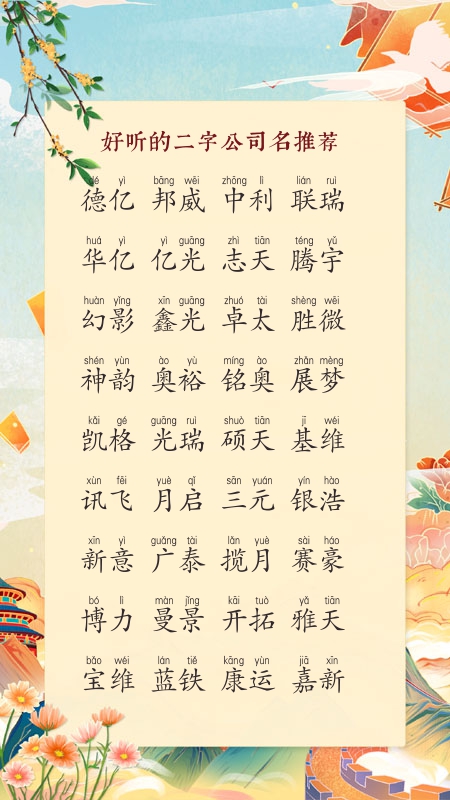 好听的二字公司名推荐
dé yì bāng wēi zhōng lì lián ruì
德亿 邦威 中利 联瑞
huá yì yì guāng zhì tiān téng yǔ
华亿 亿光 志天 腾宇
huàn yǐng xīn guāng zhuó tài shèng wēi
幻影 鑫光 卓太 胜微
shén yùn ào yù míng ào zhǎn mèng
神韵 奥裕 铭奥 展梦
kǎi gé guāng ruì shuò tiān jī wéi
凯格 光瑞 硕天 基维
xùn fēi yuè qǐ sān yuán yín hào
讯飞 月启 三元 银浩
xīn yì guǎng tài lǎn yuè sài háo
新意 广泰 揽月 赛豪
bó lì màn jǐng kāi tuò yǎ tiān
博力 曼景 开拓 雅天
bǎo wéi lán tiě kāng yùn jiā xīn
宝维 蓝铁 康运 嘉新